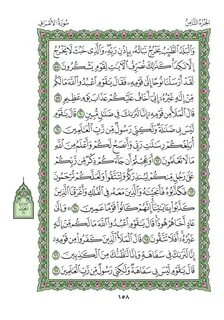 الجزء الثامن
سورة الأعراف
وَٱلْبَلَدُ ٱلطَّيِّبُ يَخْرُجُ نَبَاتُهُۥ بِإِذْنِ رَبِّهِۦ وَٱلَّذِى خَبُثَ لَا يَخْرُجُ
إِلَّا نَكِدًا كَذَٰلِكَ نُصَرِّفُ ٱلْـَٔايَـٰتِ لِقَوْمٍ يَشْكُرُونَ ٥٨
لَقَدْ أَرْسَلْنَا نُوحًا إِلَىٰ قَوْمِهِۦ فَقَالَ يَـٰقَوْمِ ٱعْبُدُوا۟ ٱللَّهَ مَا لَكُم
مِّنْ إِلَـٰهٍ غَيْرُهُۥٓ إِنِّىٓ أَخَافُ عَلَيْكُمْ عَذَابَ يَوْمٍ عَظِيمٍ ٥٩
قَالَ ٱلْمَلَأُ مِن قَوْمِهِۦٓ إِنَّا لَنَرَىٰكَ فِى ضَلَـٰلٍ مُّبِينٍ ٦٠ قَالَ يَـٰقَوْمِ
لَيْسَ بِى ضَلَـٰلَةٌ وَلَـٰكِنِّى رَسُولٌ مِّن رَّبِّ ٱلْعَـٰلَمِينَ ٦١
أُبَلِّغُكُمْ رِسَـٰلَـٰتِ رَبِّى وَأَنصَحُ لَكُمْ وَأَعْلَمُ مِنَ ٱللَّهِ
مَا لَا تَعْلَمُونَ ٦٢ أَوَعَجِبْتُمْ أَن جَآءَكُمْ ذِكْرٌ مِّن رَّبِّكُمْ
عَلَىٰ رَجُلٍ مِّنكُمْ لِيُنذِرَكُمْ وَلِتَتَّقُوا۟ وَلَعَلَّكُمْ تُرْحَمُونَ ٦٣
فَكَذَّبُوهُ فَأَنجَيْنَـٰهُ وَٱلَّذِينَ مَعَهُۥ فِى ٱلْفُلْكِ وَأَغْرَقْنَا ٱلَّذِينَ
كَذَّبُوا۟ بِـَٔايَـٰتِنَآ إِنَّهُمْ كَانُوا۟ قَوْمًا عَمِينَ ٦٤ وَإِلَىٰ
عَادٍ أَخَاهُمْ هُودًا قَالَ يَـٰقَوْمِ ٱعْبُدُوا۟ ٱللَّهَ مَا لَكُم مِّنْ إِلَـٰهٍ
غَيْرُهُۥٓ أَفَلَا تَتَّقُونَ ٦٥ قَالَ ٱلْمَلَأُ ٱلَّذِينَ كَفَرُوا۟ مِن قَوْمِهِۦٓ
إِنَّا لَنَرَىٰكَ فِى سَفَاهَةٍ وَإِنَّا لَنَظُنُّكَ مِنَ ٱلْكَـٰذِبِينَ ٦٦
قَالَ يَـٰقَوْمِ لَيْسَ بِى سَفَاهَةٌ وَلَـٰكِنِّى رَسُولٌ مِّن رَّبِّ ٱلْعَـٰلَمِينَ ٦٧
١٥٨